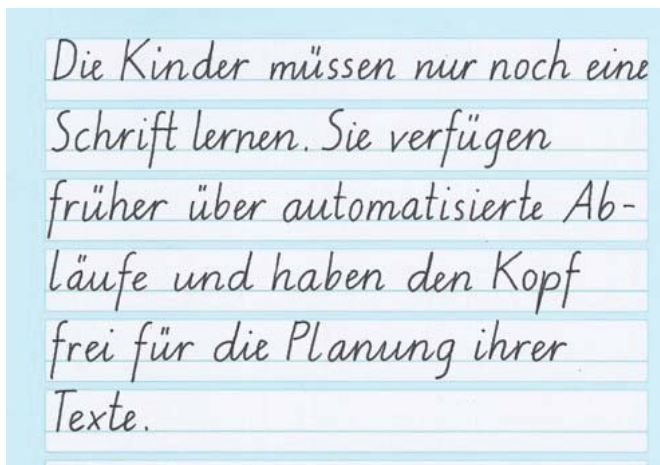 Die Kinder müssen nur noch eine
Schrift lernen. Sie verfügen
früher über automatisierte Ab-
läufe und haben den Kopf
frei für die Planung ihrer
Texte.